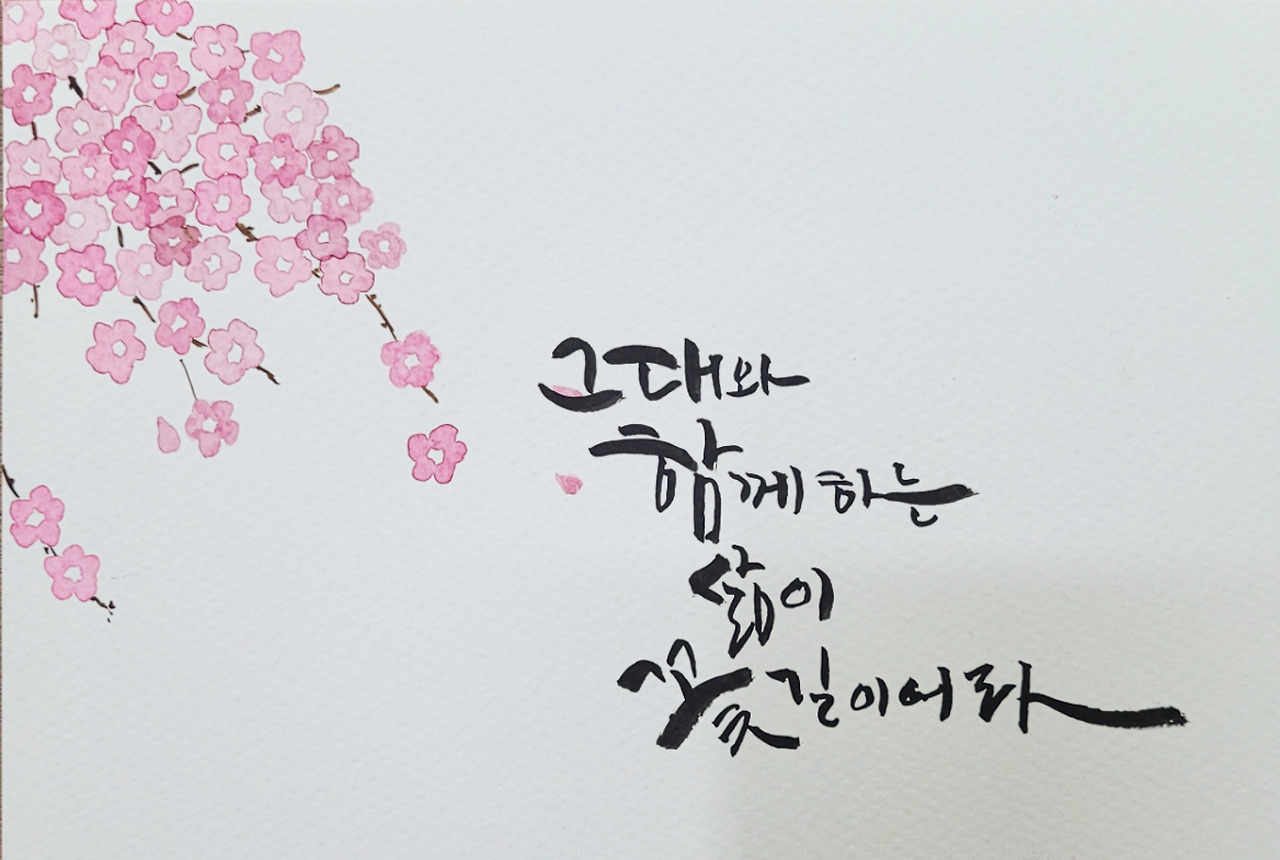 그대와
함께하는
삶이
꽃길이어라